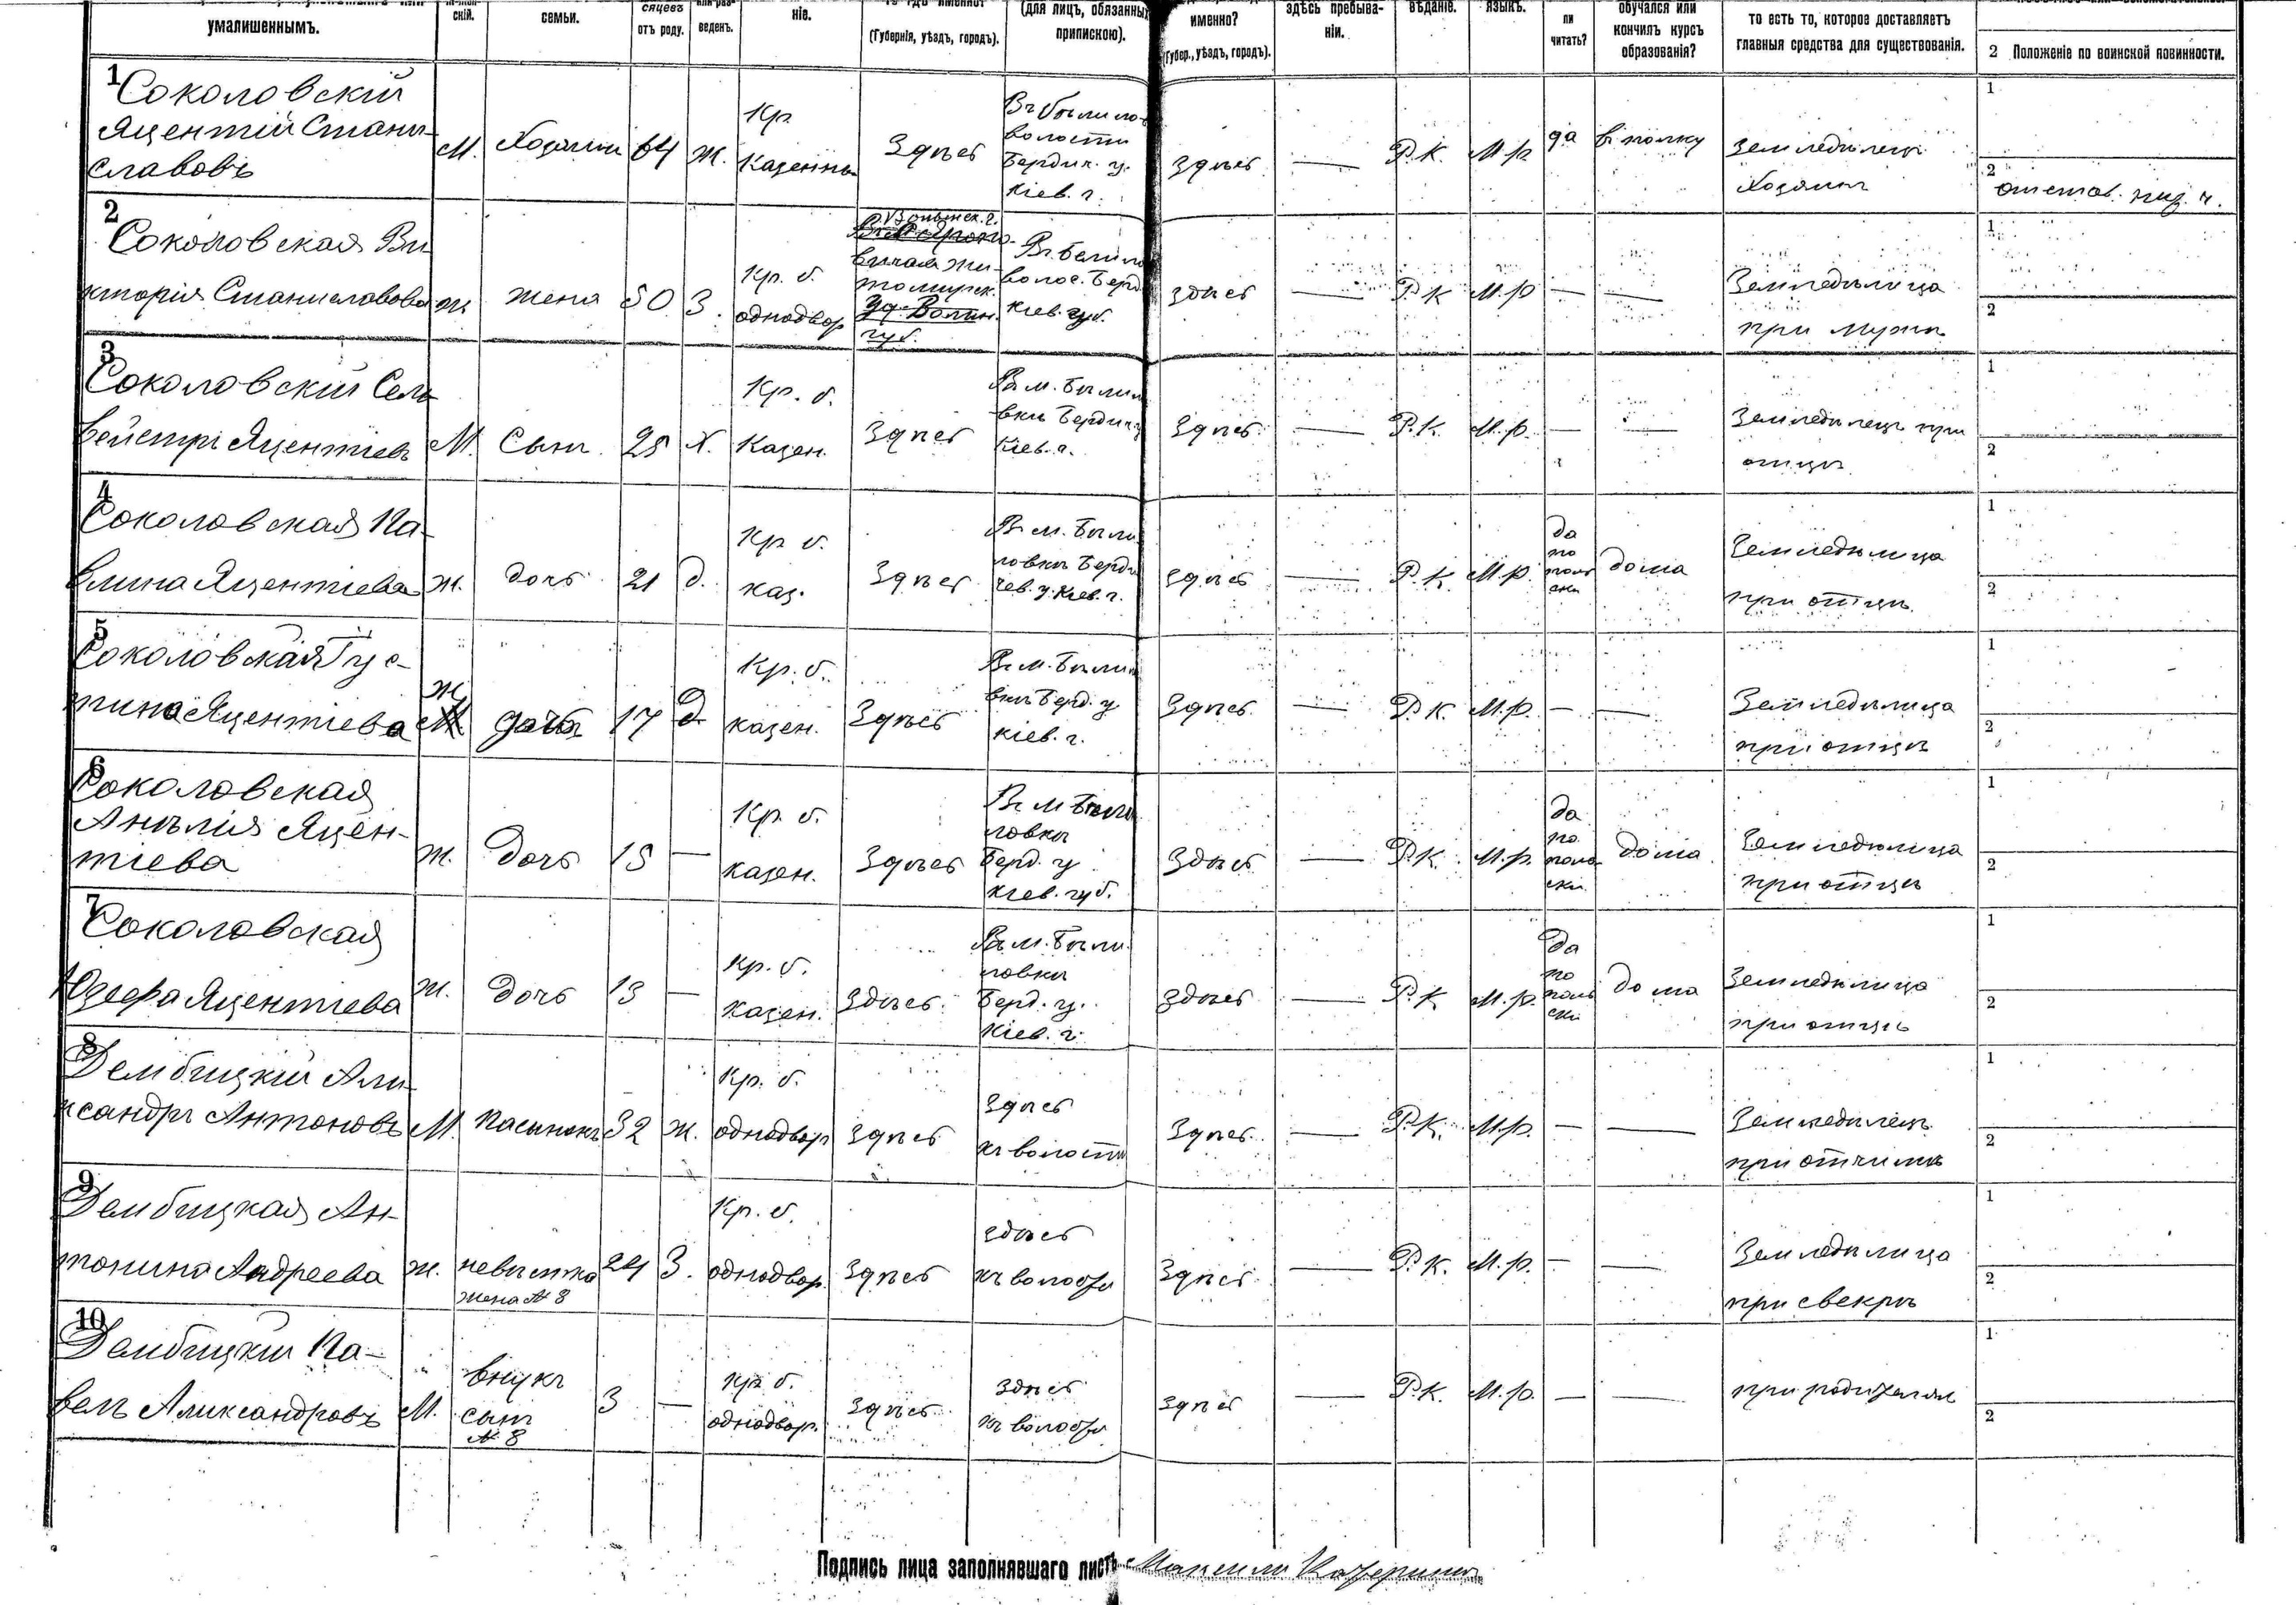 умалишеннымъ.
скій.
семьи.
сяцевъ
отъ роду.
или раз-
веденъ.
ніе.
(Губернія, уѣздъ, городъ).
(для лицъ, обязанныхъ
припискою).
именно?
(Губер., уѣздъ, городъ).
здѣсь пребыва-
ніи.
вѣданіе.
языкъ.
ли
читать?
обучался или
кончилъ курсъ
образованія?
то есть то, которое доставляетъ
главныя средства для существованія.
2 Положеніе по воинской повинности.
1
Соколовскій
Яцентій Стани-
славовъ
М.
Хозяинъ
64
Ж.
Кр.
Казенны
Здѣсь
волости
Бердич. у.
Кіев. г.
Здѣсь
—
Р.К.
М.р.
да
въ полку
Земледѣлецъ
Хозяинъ
1
2
отстав.
2
Соколовская Ви-
кторія Станиславова
Ж.
жена
50
З.
Кр. б.
однодвор
Волынск. г.
Жи-
томирск.
уѣ. Волын.
губ.
волос. Берд.
Кіев. губ.
здѣсь
—
Р.К.
М.р.
—
—
Земледѣлица
при мужѣ
1
2
3
Соколовскій Сель-
вейстръ Яцентіевъ
М.
Сынъ
25
Х.
Кр. б.
Казен.
Здѣсь
Въ м. Были
вкѣ Бердич. у
Кіев. г.
Здѣсь
—
Р.К.
М.р.
—
—
Земледѣлецъ при
отцѣ
1
2
4
Соколовская Па-
влина Яцентіева
Ж.
дочь
21
д.
Кр. б.
каз.
Здѣсь
Въ м. Были
ловкѣ Берди
чев. у. Кіев. г.
здѣсь
—
Р.К.
М.р.
да
по
поль
ски
дома
Земледѣлица
при отцѣ
1
2
5
Соколовская Гус-
тина Яцентіева
Ж
дочь
17
д
Кр. б.
казен.
Здѣсь
Въ м. Были
вкѣ Берд. у
Кіев. г.
Здѣсь
—
Р.К.
М.р.
—
—
Земледѣлица
при отцѣ
1
2
6
Соколовская
Анѣлія Яцен-
тіева
Ж.
Дочь
15
—
Кр. б.
казен.
Здѣсь
Въ м Были
ловкѣ
Берд. у
Кіев. губ.
Здѣсь
—
Р.К.
М.р.
да
по
поль
ски
дома
Земледѣлица
при отцѣ
1
2
7
Соколовская
Юзефа Яцентіева
Ж.
Дочь
13
—
Кр. б.
казен.
Здѣсь
Въ м. Были
ловкѣ
Берд. у.
Кіев. г.
Здѣсь
—
Р.К
М.р.
Да
по
поль
ски
дома
Земледѣлица
при отцѣ
1
2
8
Дембицкій Але-
ксандръ Антоновъ
М.
Пасынокъ
32
Ж.
Кр. б.
однодвор
Здѣсь
Здѣсь
къ волости
Здѣсь
—
Р.К.
М.р.
—
—
Земледѣлецъ
при отчимѣ
1
2
9
Дембицкая Ан-
тонина Андреева
Ж.
невѣстка
жена № 8
24
З.
Кр. б.
однодвор.
Здѣсь
здѣсь
къ волости
Здѣсь
—
Р.К.
М.р.
—
—
Земледѣлица
при свекрѣ
1
2
10
Дембицкій Па-
велъ Александровъ
М.
внукъ
сынъ
№ 8
3
—
Кр. б.
однодвор.
Здѣсь
здѣсь
къ волости
Здѣсь
—
Р.К.
М.р.
—
—
при родителях
1
2
Подпись лица заполнявшаго листъ